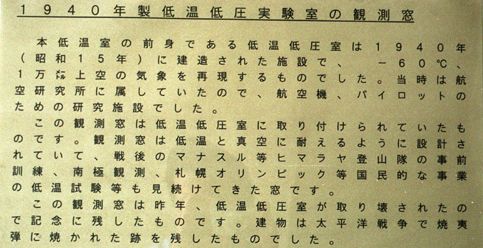 1940年製低温低圧実験室の観測窓
本低温室の前身である低温低圧室は1940年
(昭和15年)に建造された施設で、－60℃、
1万㍍上空の気象を再現するものでした。当時は航
空研究所に属していたので、航空機、パイロットの
ための研究施設でした。
この観測窓は低温低圧室に取り付けられていたも
のです。観測窓は低温と真空に耐えるように設計さ
れていて、戦後のマナスル等ヒマラヤ登山隊の事前
訓練、南極観測、札幌オリンピック等国民的な事業
の低温試験等も見続けてきた窓です。
この観測窓は昨年、低温低圧室が取り壊されたの
で記念に残したものです。建物は太平洋戦争で焼夷
弾に焼かれた跡を残したものでした。